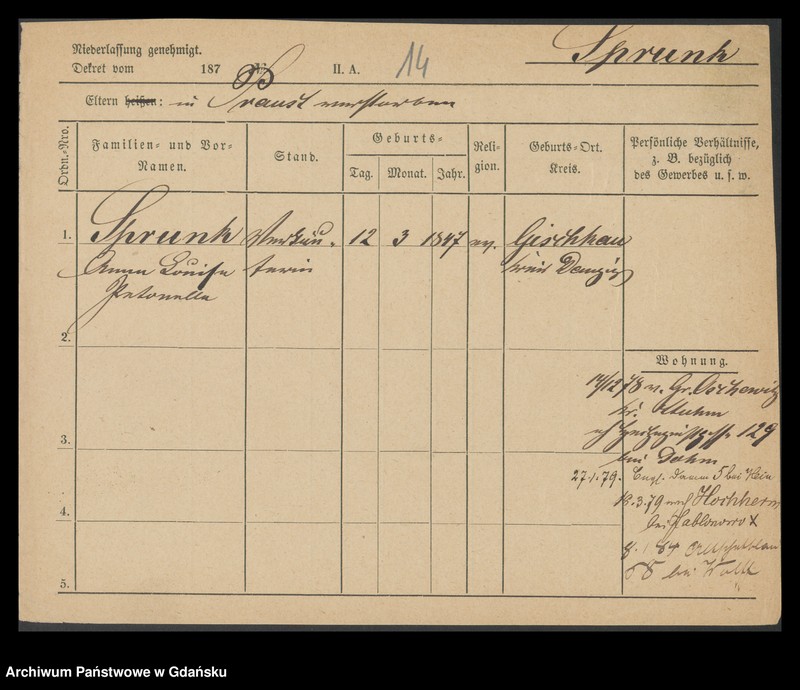 Niederlassung genehmigt.
Sprunk
Dekret vom 187 II. A. 14
Eltern heißen: in Praust verstorben
Ordn.-Nro. Familien- und Vor-Namen. Stand. Geburts- Tag. Monat. Jahr. Religion. Geburts-Ort. Kreis. Persönliche Verhältnisse, z. B. bezüglich des Gewerbes u. s. w.
1. Sprunk Verkäu- 12 3 1847 ev. Gischkau
Anna Louise terin Kreis Danzig
Petronella
2.
Wohnung.
14/12 78 v. Gr.
Kr. Stuhm
129
3.
bei Dahm
27.1.79. Engl. Damm 5 bei Hein
18.3.79 nach Hochherr
4.
bei Jablonowo x
8. 84
68 bei
5.
Archiwum Państwowe w Gdańsku